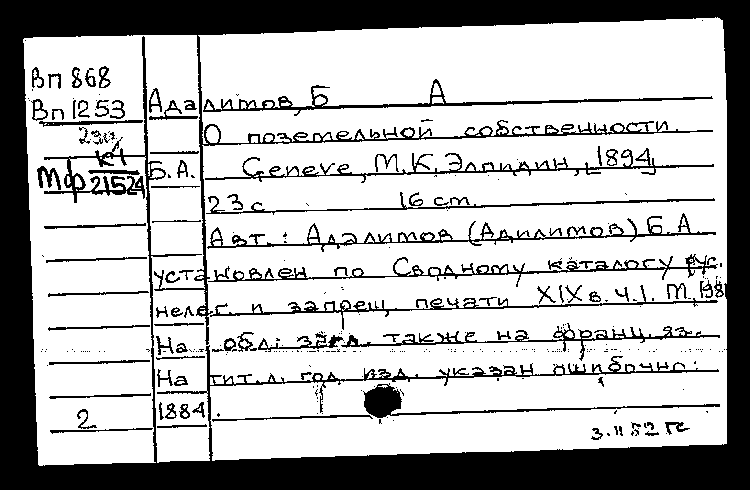 Вп 868
Вп 1253
Адалимов, Б А
О поземельной собственности.
Мф К4/21524 Б.А. Geneve, М.К. Элпидин, [1894]
23 с. 16 cm.
Авт.: Адалимов (Адилимов) Б.А
установлен по Сводному каталогу рус.
нелег. и запрещ. печати XIX в. Ч.1. М, 198
На обл.: загл. также на франц. яз.
На тит. л. год изд. указан ошибочно:
2 1884.